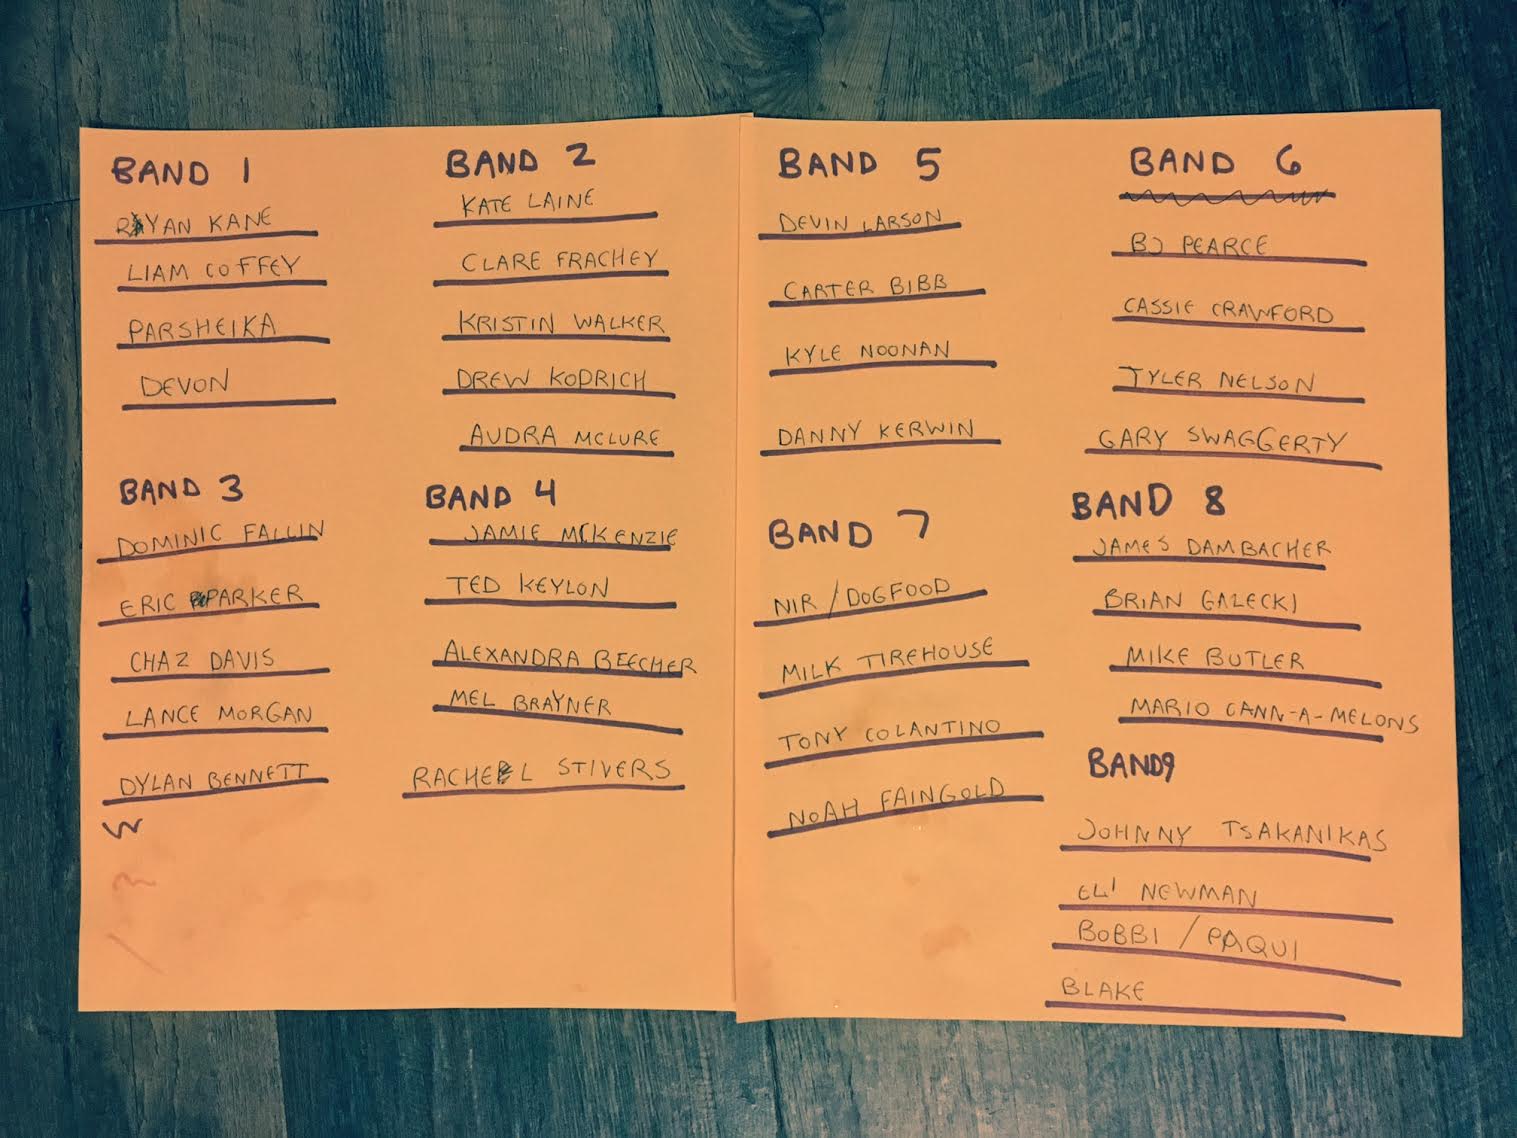 BAND 1
RYAN KANE
LIAM COFFEY
PARSHEIKA
DEVON
BAND 2
KATE LAINE
CLARE FRACHEY
KRISTIN WALKER
DREW KODRICH
AUDRA MCLURE
BAND 3
DOMINIC FALLIN
ERIC PARKER
CHAZ DAVIS
LANCE MORGAN
DYLAN BENNETT
BAND 4
JAMIE MCKENZIE
TED KEYLON
ALEXANDRA BEECHER
MEL BRAYNER
RACHEL STIVERS
BAND 5
DEVIN LARSON
CARTER BIBB
KYLE NOONAN
DANNY KERWIN
BAND 6
BJ PEARCE
CASSIE CRAWFORD
TYLER NELSON
GARY SWAGGERTY
BAND 7
NIR / DOGFOOD
MILK TIREHOUSE
TONY COLANTINO
NOAH FAINGOLD
BAND 8
JAMES DAMBACHER
BRIAN GALECKI
MIKE BUTLER
MARIO CANN-A-MELONS
BAND9
JOHNNY TSAKANIKAS
ELI NEWMAN
BOBBI / PAQUI
BLAKE